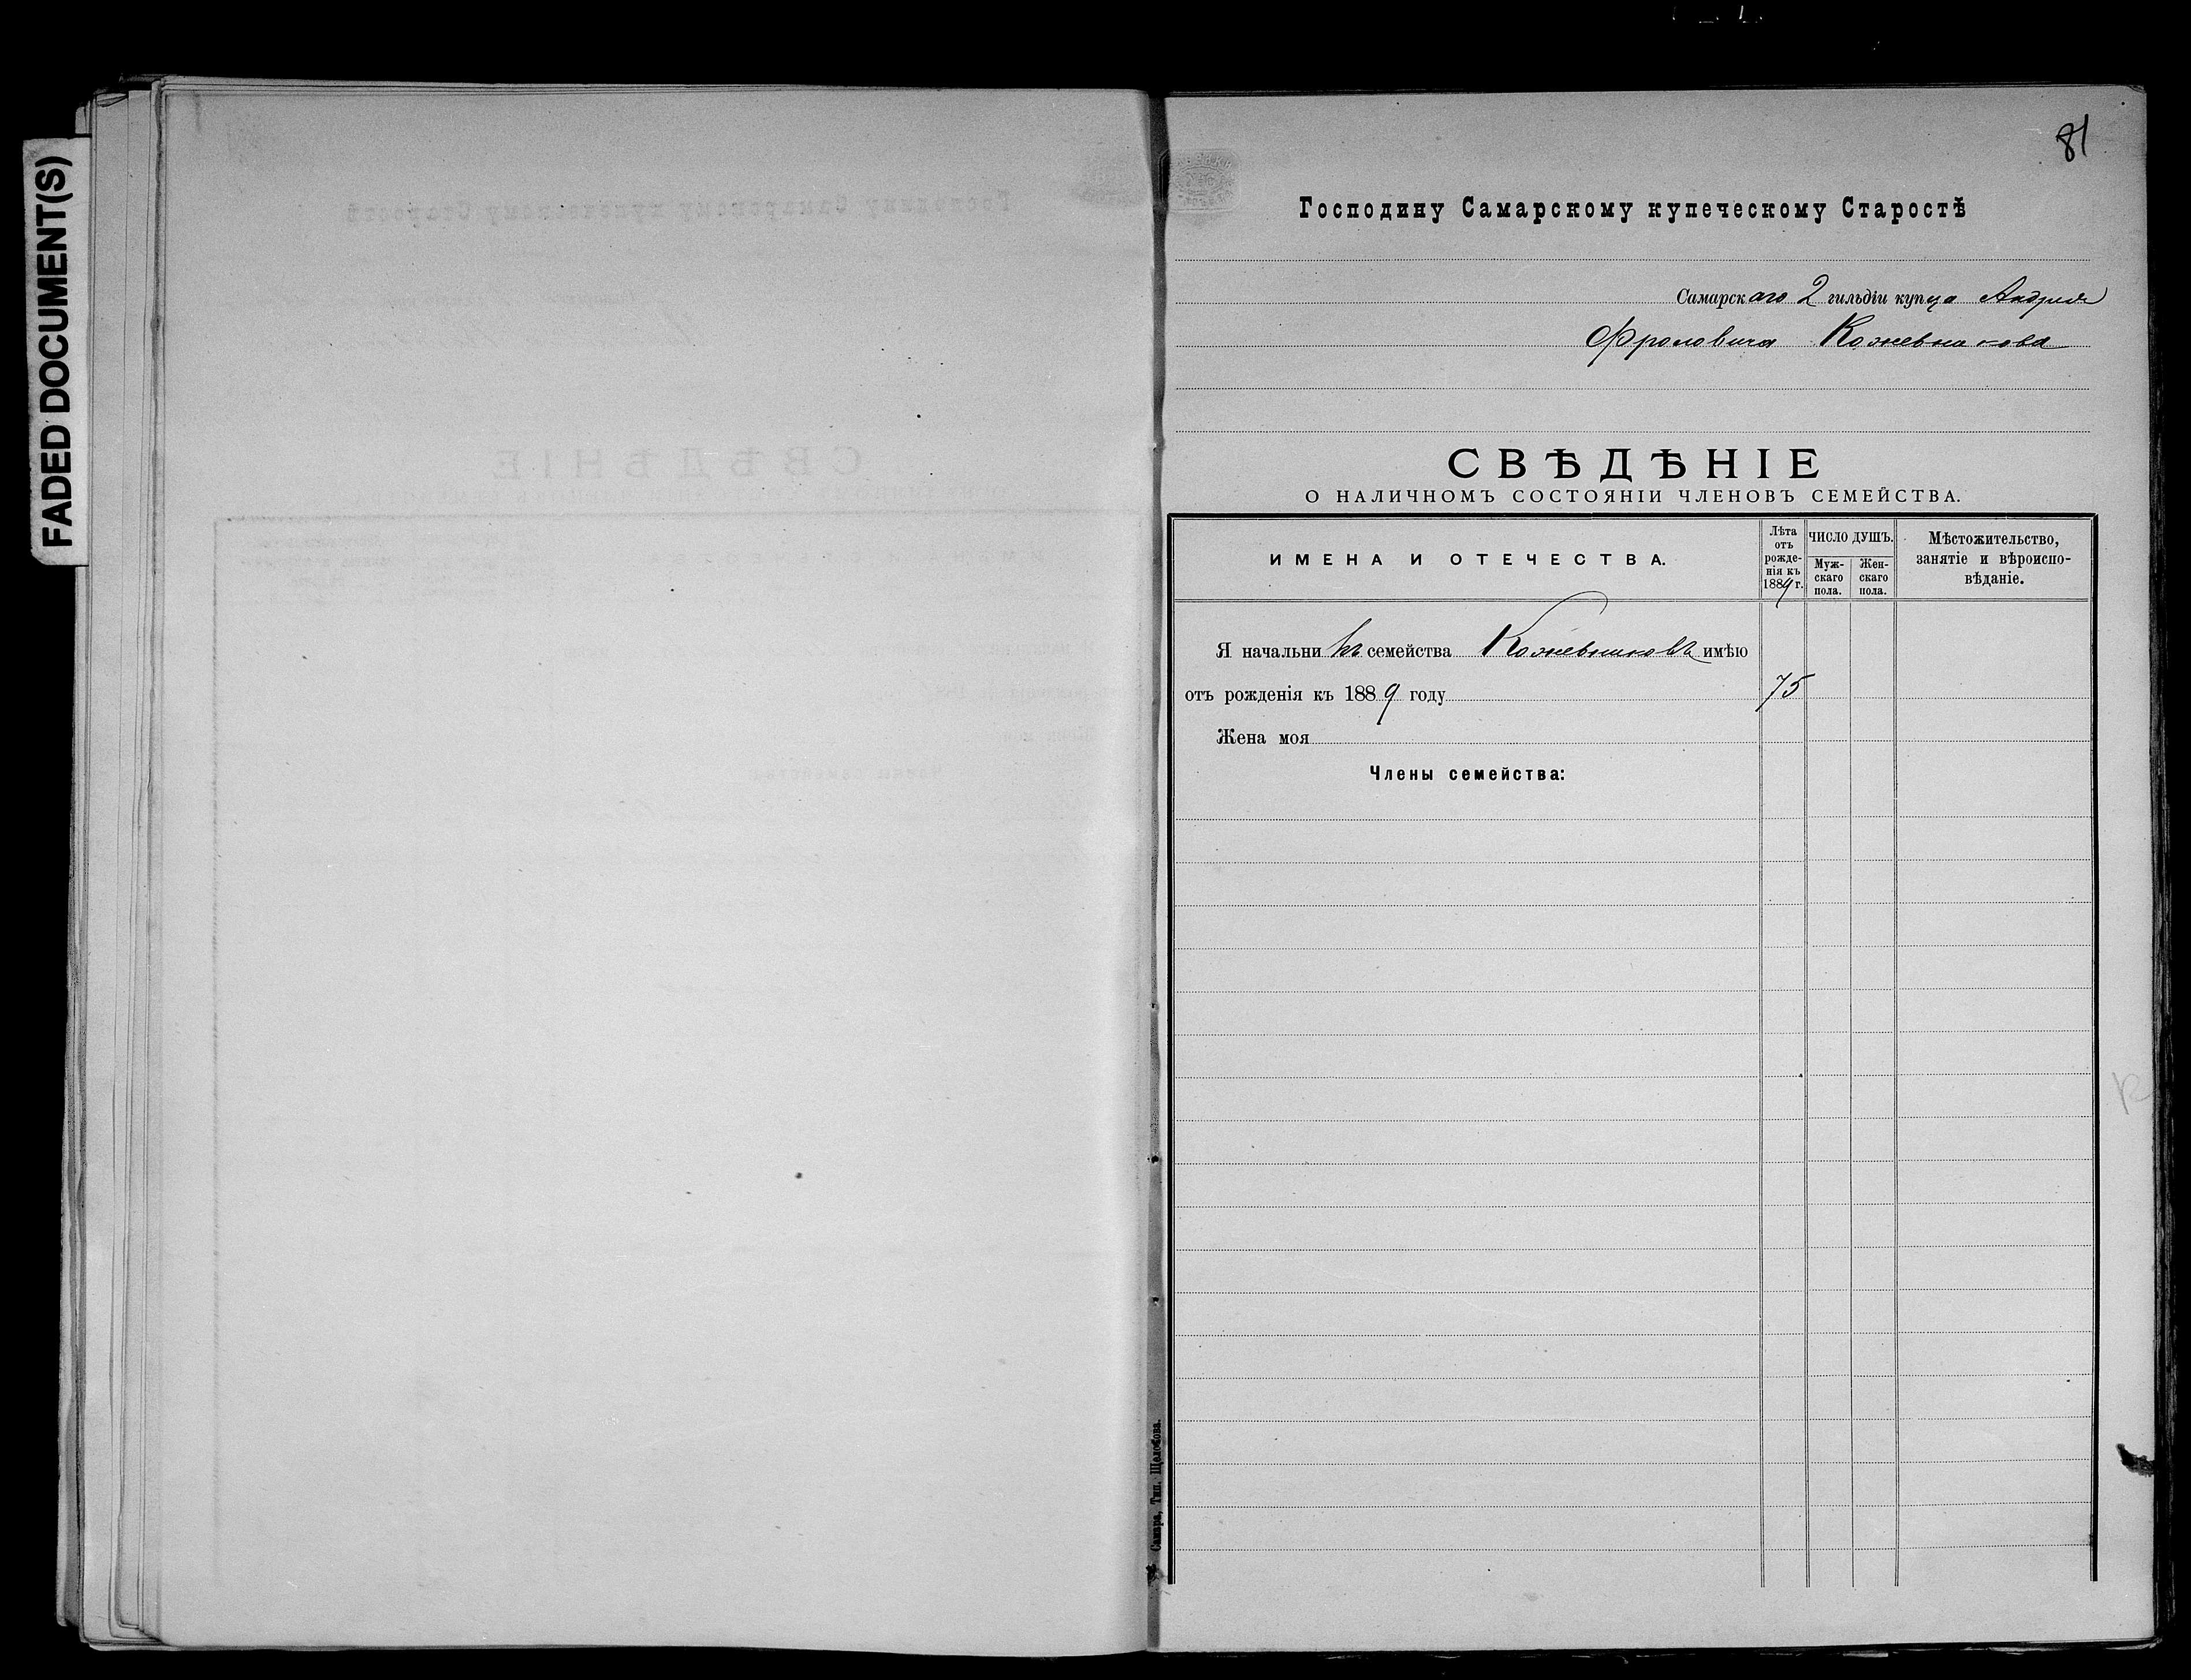 FADED DOCUMENT(S)
81
Господину Самарскому купеческому Старостѣ
Самарскаго 2 гильдіи купца Андрея
Фроловича Кожевникова
СВѢДѢНІЕ
О НАЛИЧНОМЪ СОСТОЯНІИ ЧЛЕНОВЪ СЕМЕЙСТВА.
ИМЕНА И ОТЕЧЕСТВА.
Лѣта
отъ
рожде-
нія къ
1889 г.
ЧИСЛО ДУШЪ.
Муж-
скаго
пола.
Жен-
скаго
пола.
Мѣстожительство,
занятіе и вѣроиспо-
вѣданіе.
Я начальникъ семейства Кожевниковъ имѣю
отъ рожденія къ 1889 году 75
Жена моя
Члены семейства:
Самара, Тип. Щелокова.